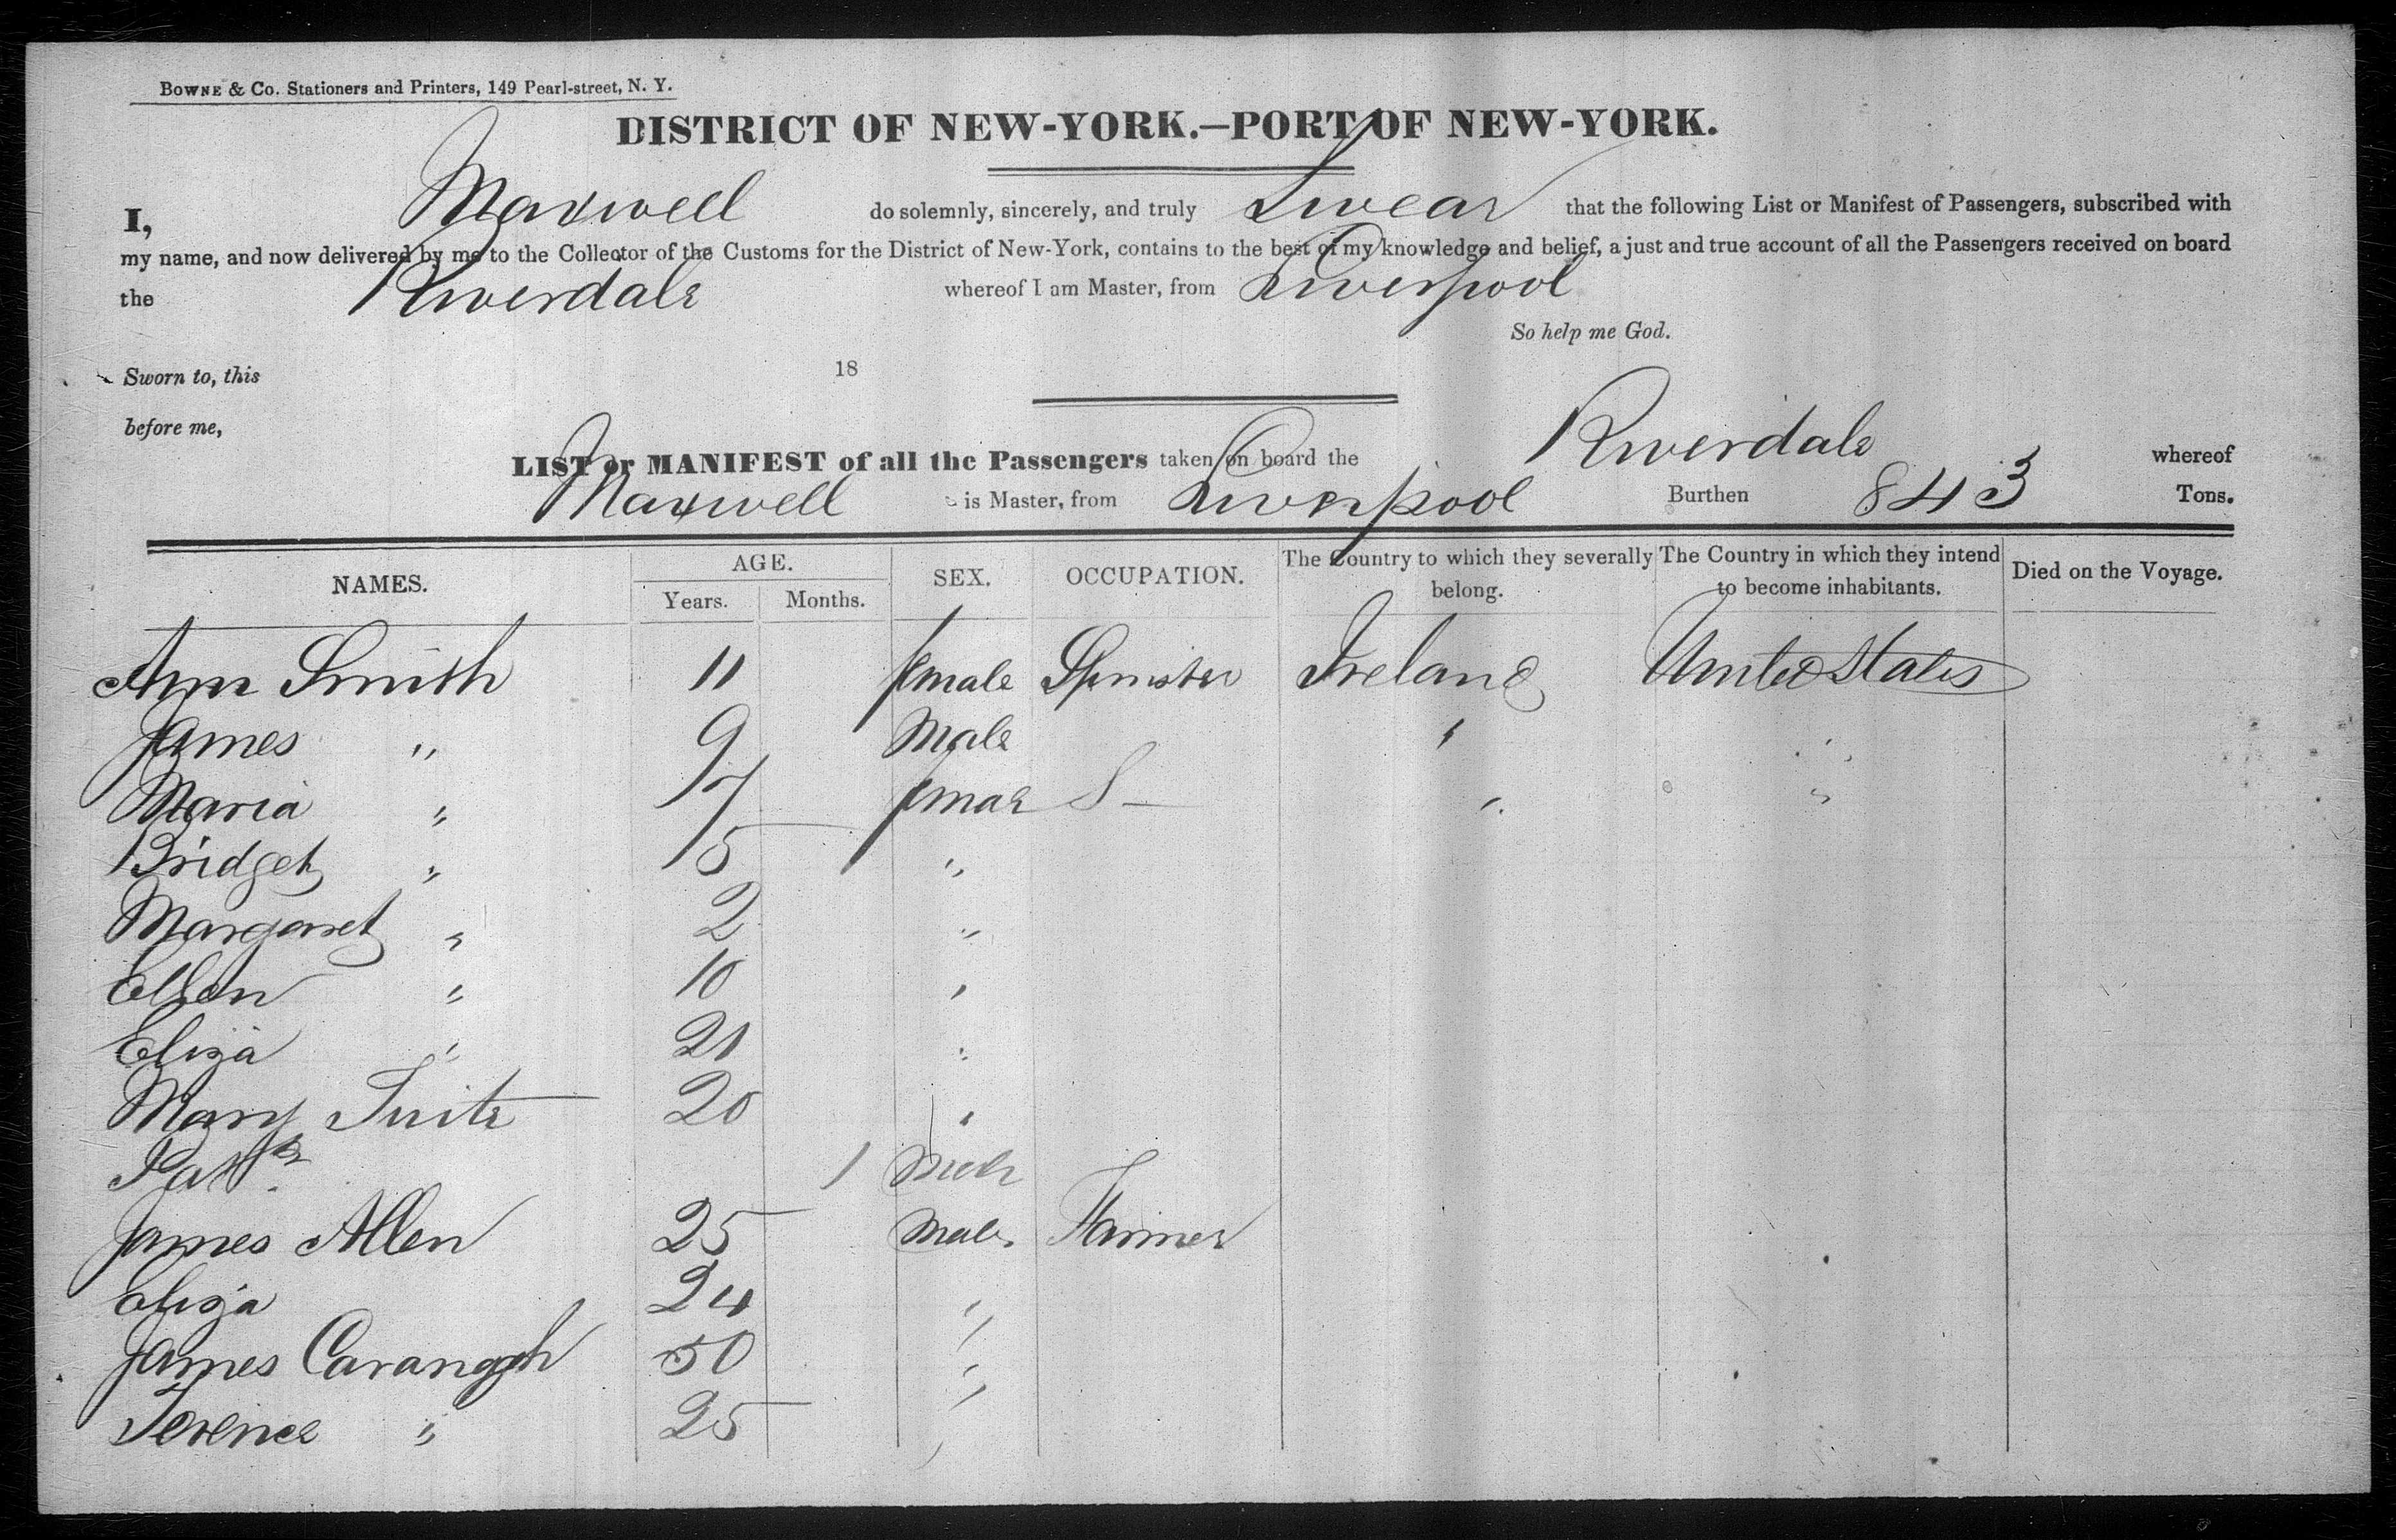 BOWNE & CO. Stationers and Printers, 149 Pearl-street, N. Y.
DISTRICT OF NEW-YORK.—PORT OF NEW-YORK.
I, Maxwell do solemnly, sincerely, and truly Swear that the following List or Manifest of Passengers, subscribed with
my name, and now delivered by me to the Collector of the Customs for the District of New-York, contains to the best of my knowledge and belief, a just and true account of all the Passengers received on board
the Riverdale whereof I am Master, from Liverpool
So help me God.
Sworn to, this 18
before me,
LIST or MANIFEST of all the Passengers taken on board the Riverdale whereof
Maxwell is Master, from Liverpool Burthen 843 Tons.
NAMES. AGE. Years. Months. SEX. OCCUPATION. The Country to which they severally belong. The Country in which they intend to become inhabitants. Died on the Voyage.
Ann Smith 11 female Spinster Ireland United States
James " 9 Male " "
Maria " 7 female S — " "
Bridget " 5 "
Margaret " 2 "
Ellen " 10 "
Eliza " 21 "
Mary Tuite 20 "
Patk 1
James Allen 25 Male Farmer
Eliza 24 "
James Cavanagh 50 "
Terence " 25 "